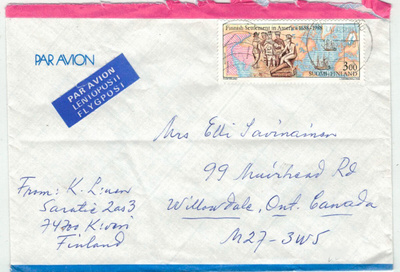 Finnish Settlement in America 1638-1988
3,00
SUOMI-FINLAND
PAR AVION
PAR AVION
LENTOPOSTI
FLYGPOST
Mrs Elli Savinainen
99 Muirhead Rd
Willowdale, Ont. Canada
M2J-3W5
From: K.
2as3
74700 Kiuruvesi
Finland